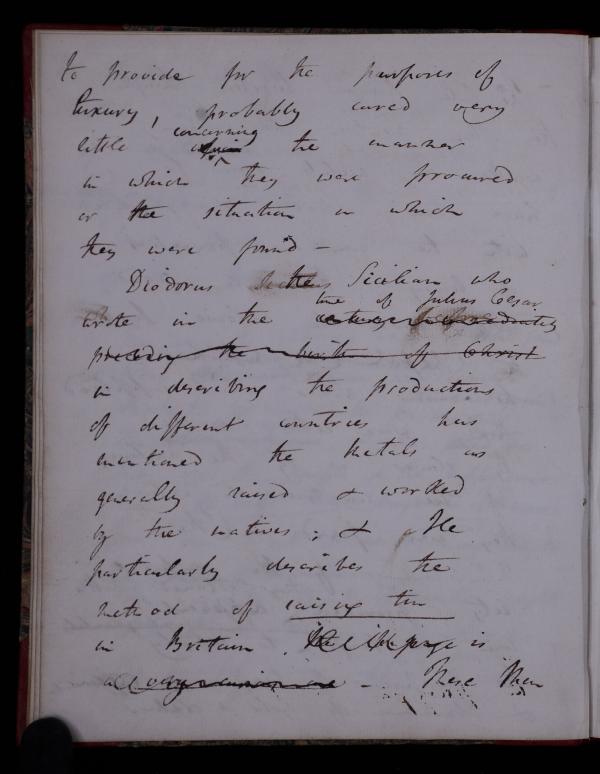 to provide for the purposes of
luxury, probably cared very
concerning
little the manner
in which they were procured
or the situation in which
they were found —
Diodorus the Sicilian who
time of Julius Cesar
wrote in the century before immediately
preceding the birth of Christ
in describing the productions
of different countries has
mentioned the Metals as
generally raised & worked
by the natives; & He
particularly describes the
method of raising tin
in Britain is
a very — These Men